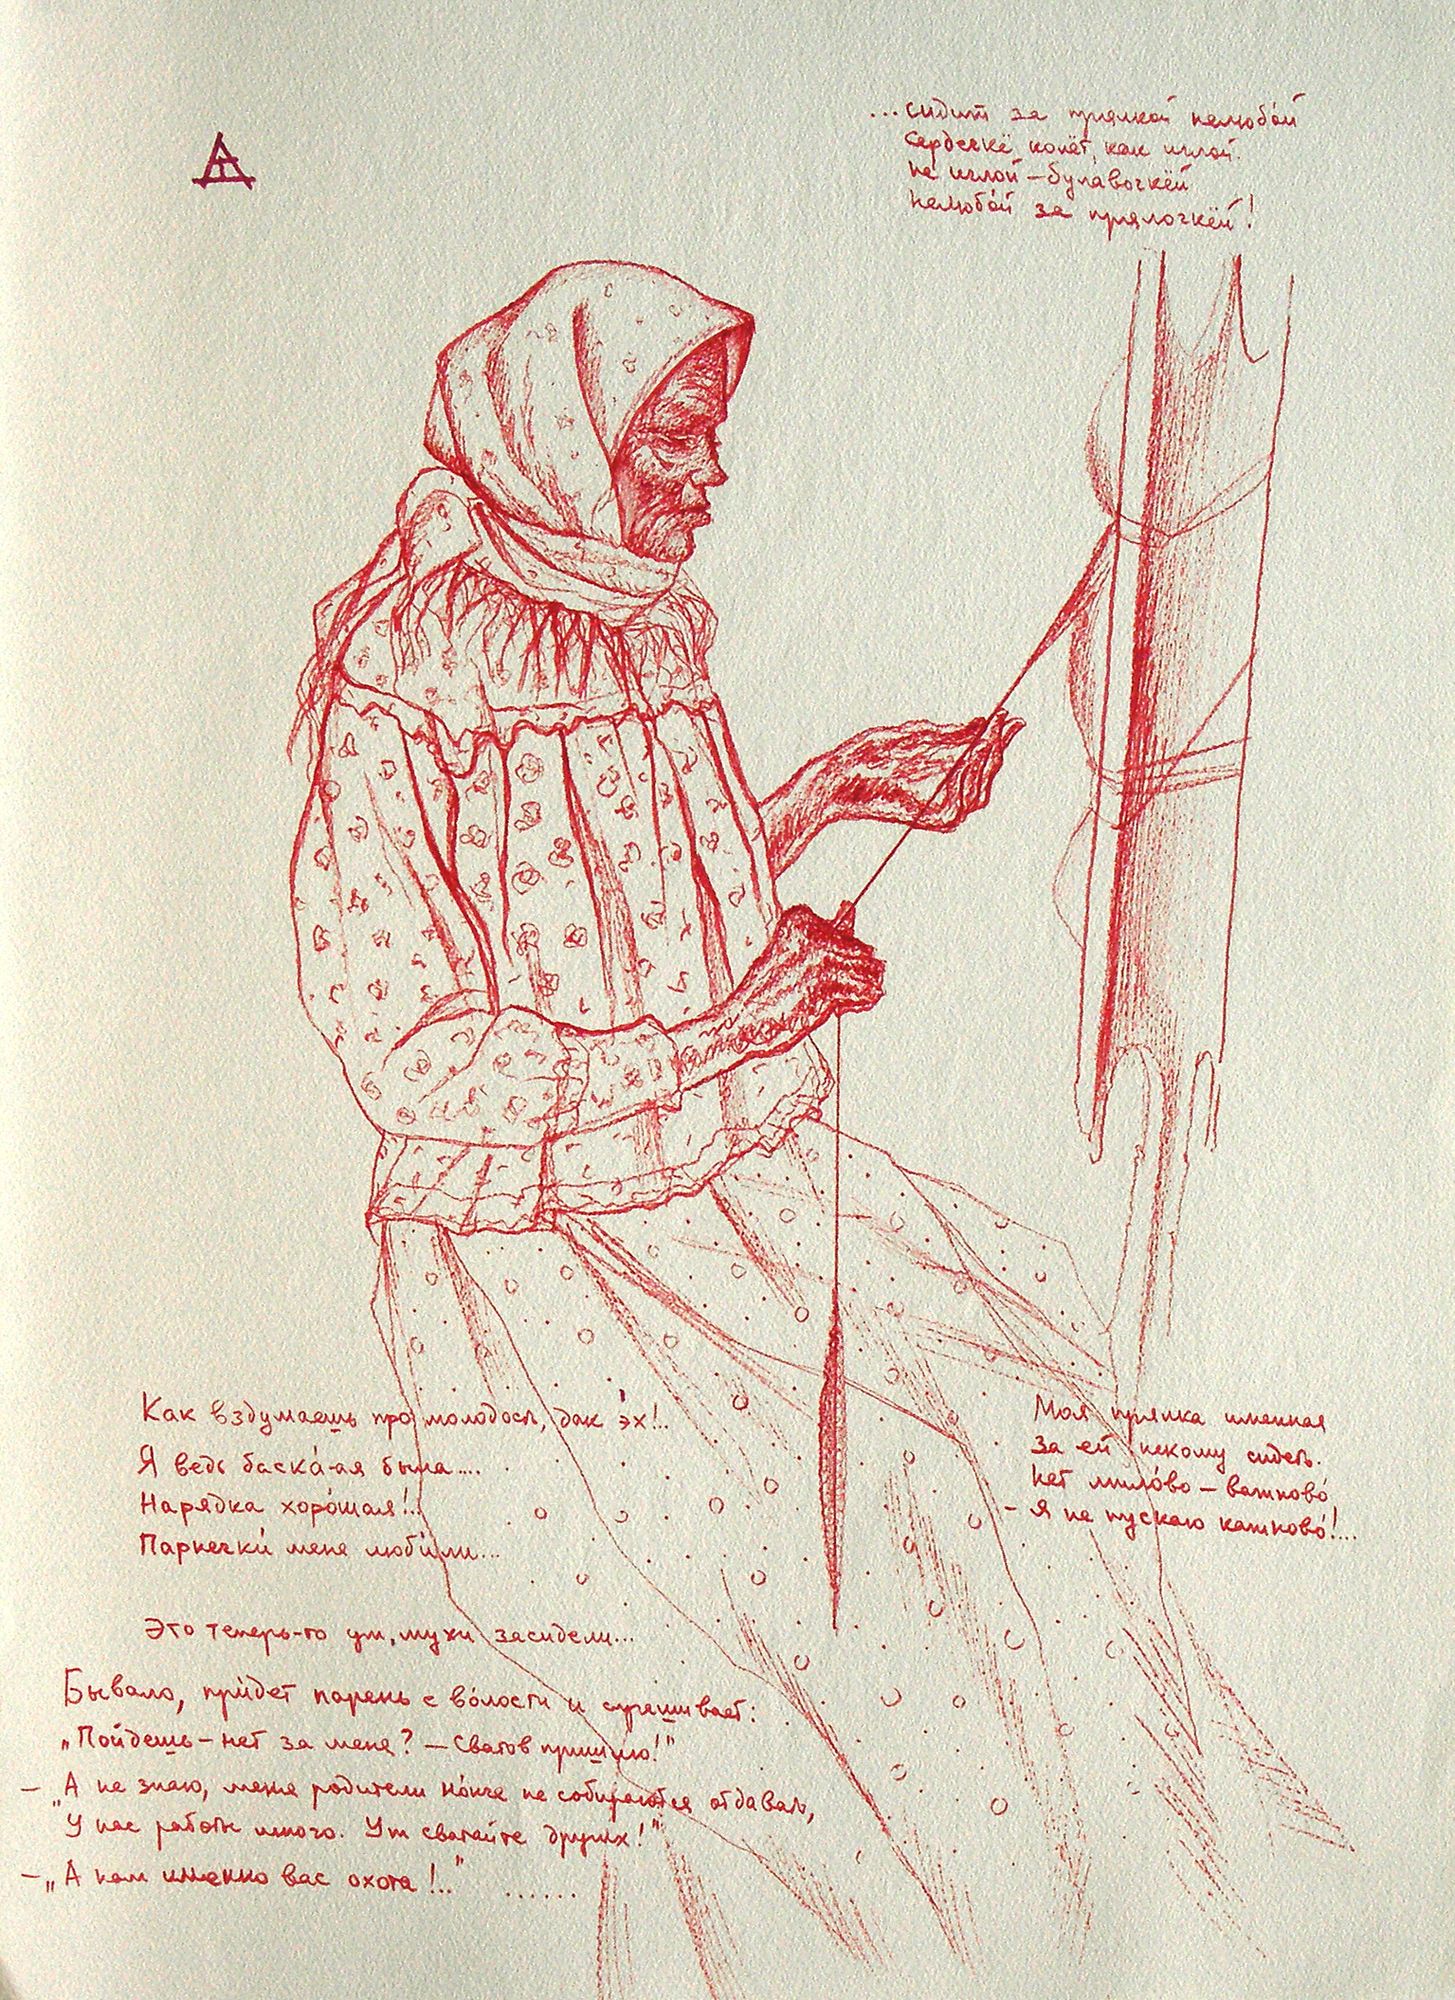 ...сидит за прялкой нелюбо́й
Сердечкё колёт, как иглой.
не иглой – була́вочкёй
нелюбо́й за прялочкёй!
Как вздумаешь про молодость, дак э́х!..
Я ведь баска́-ая была....
Нарядка хоро́шая!..
Парнечки́ меня люби́ли...
Моя прялка именная
За ей некому сидеть.
Нет мило́во – важново́,
– Я не пускаю кажново́!...
Это теперь-то уж, мухи засидели...
Бывало, при́дет парень с во́лости и спрашивает:
„Пойдешь – нет за меня? – Сватов пришлю!"
– „А не знаю, меня родители но́нче не собираются отдавать,
У нас работы много. Уж сватайте других!"
– „А нам именно вас охота!.." .......